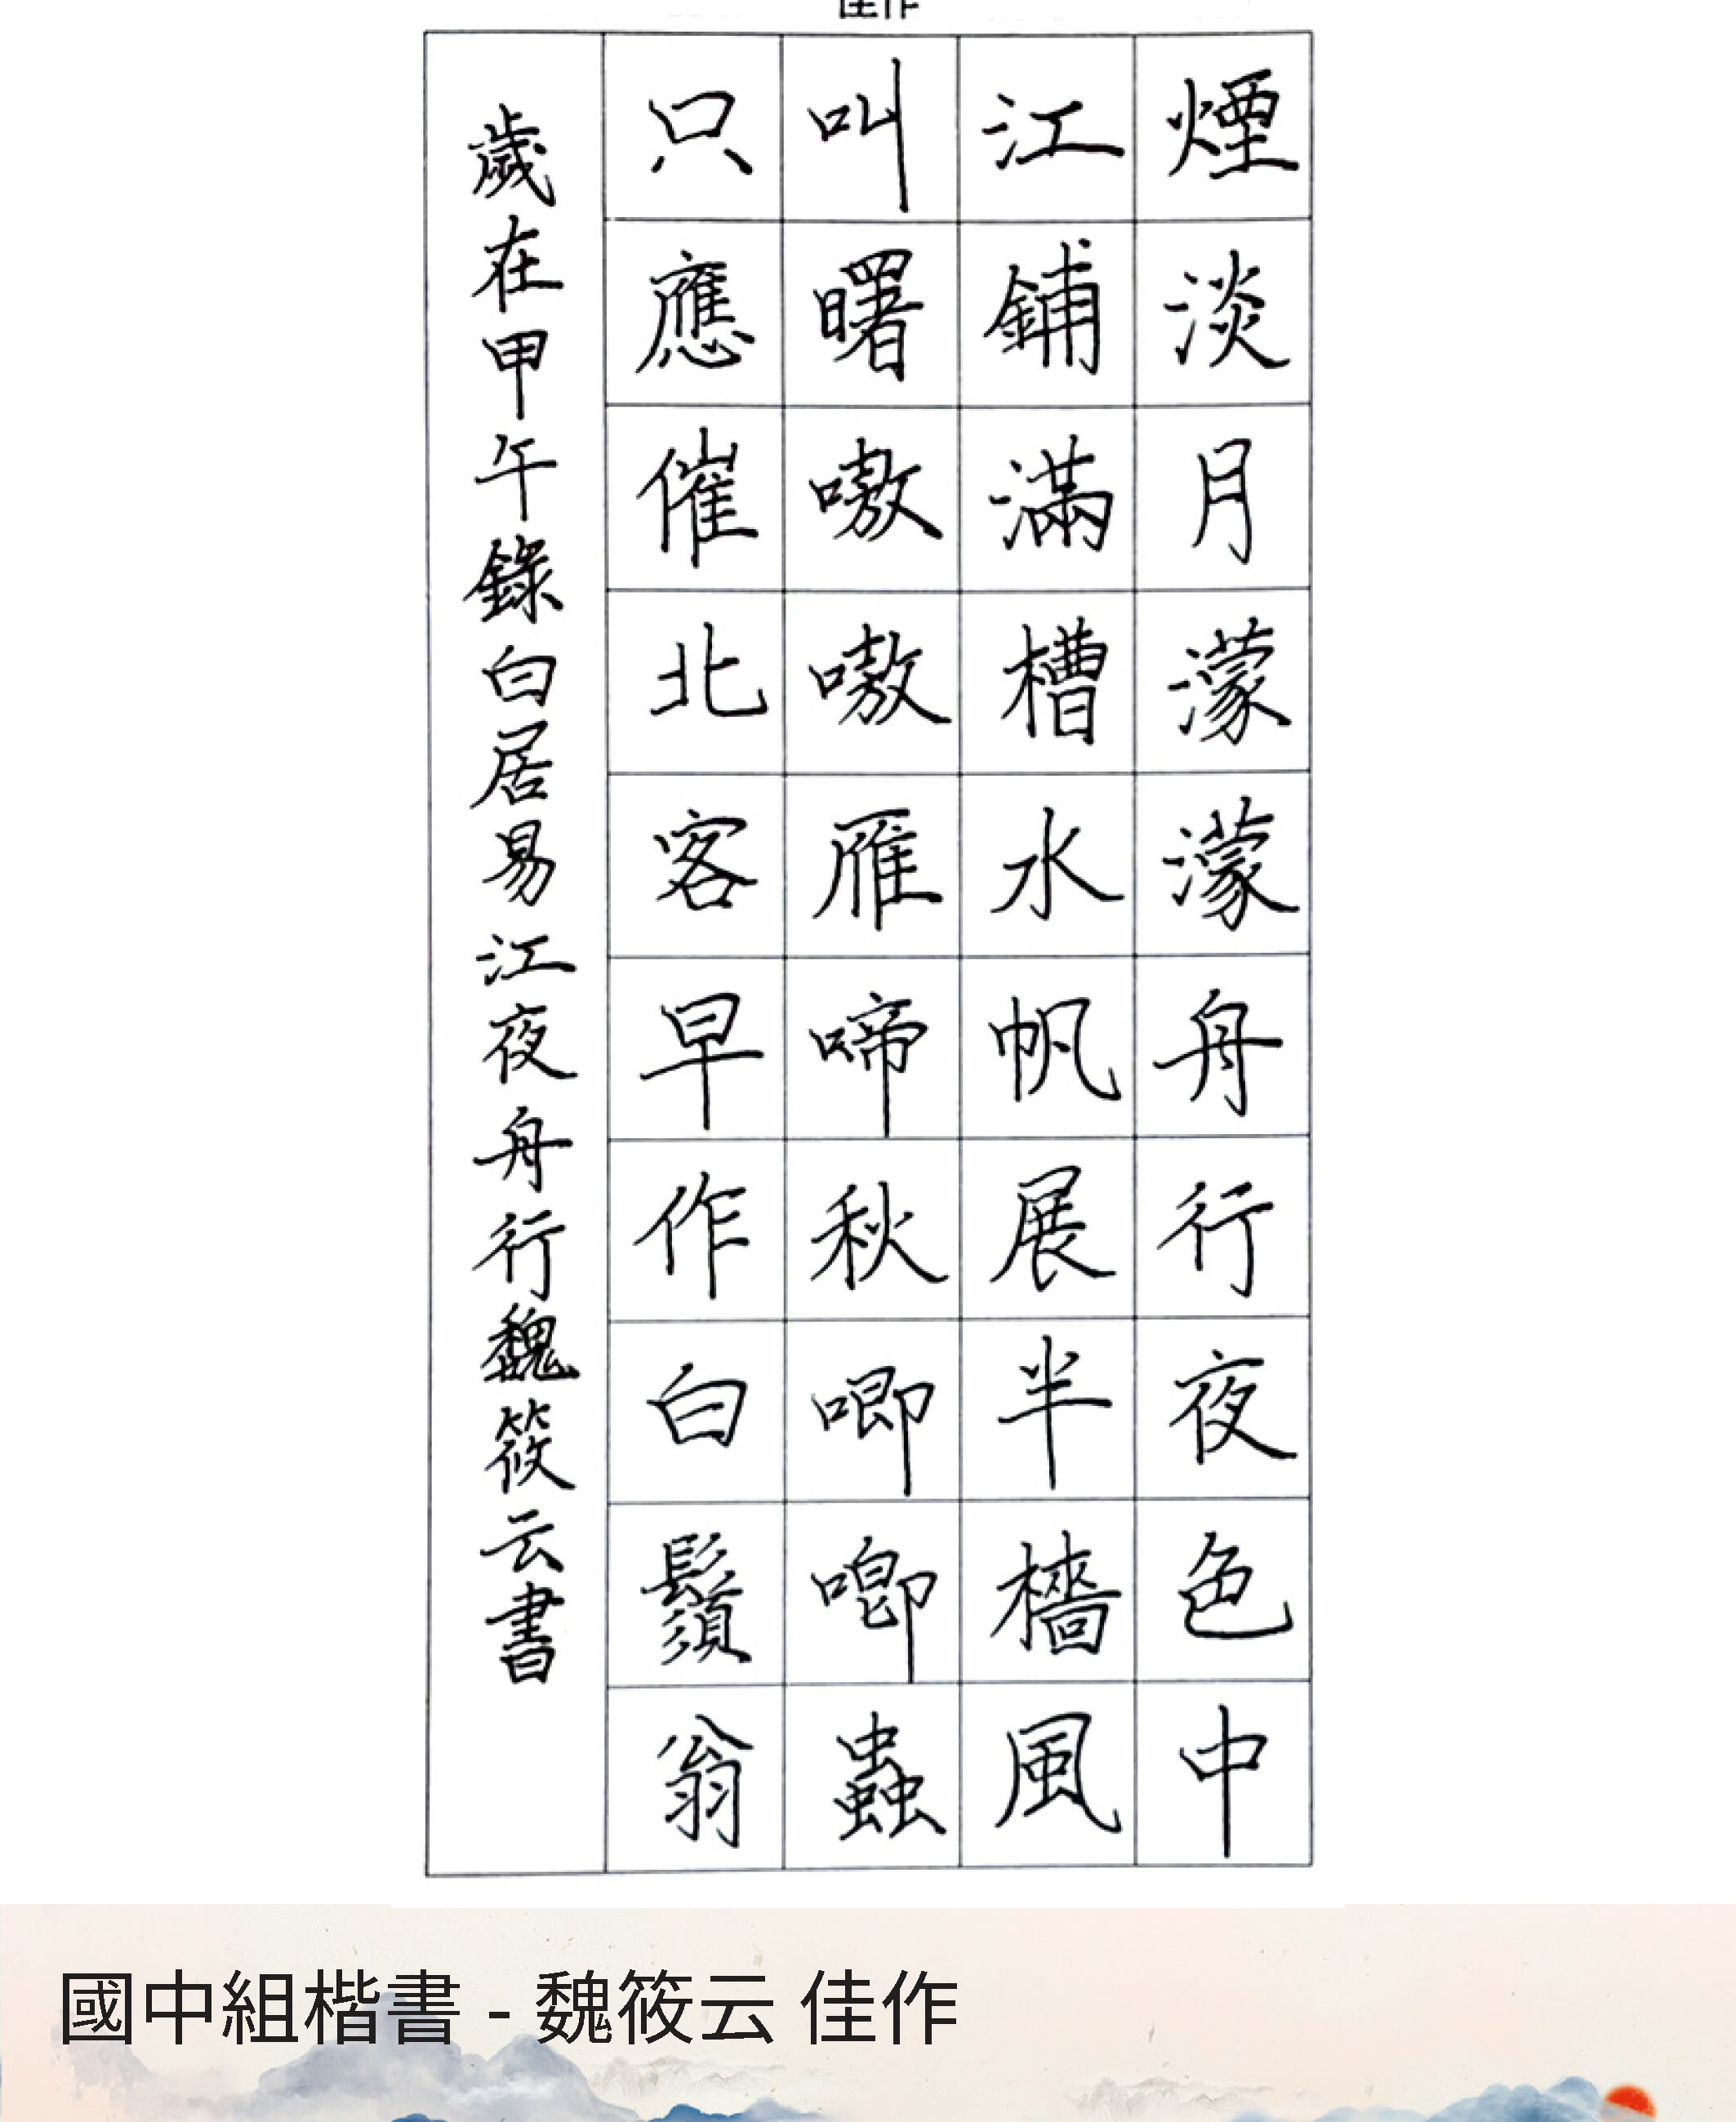 佳作
煙淡月濛濛舟行夜色中
江鋪滿槽水帆展半檣風
叫曙嗷嗷雁啼秋唧唧蟲
只應催北客早作白鬚翁
歲在甲午錄白居易江夜舟行魏筱云書
國中組楷書 - 魏筱云 佳作